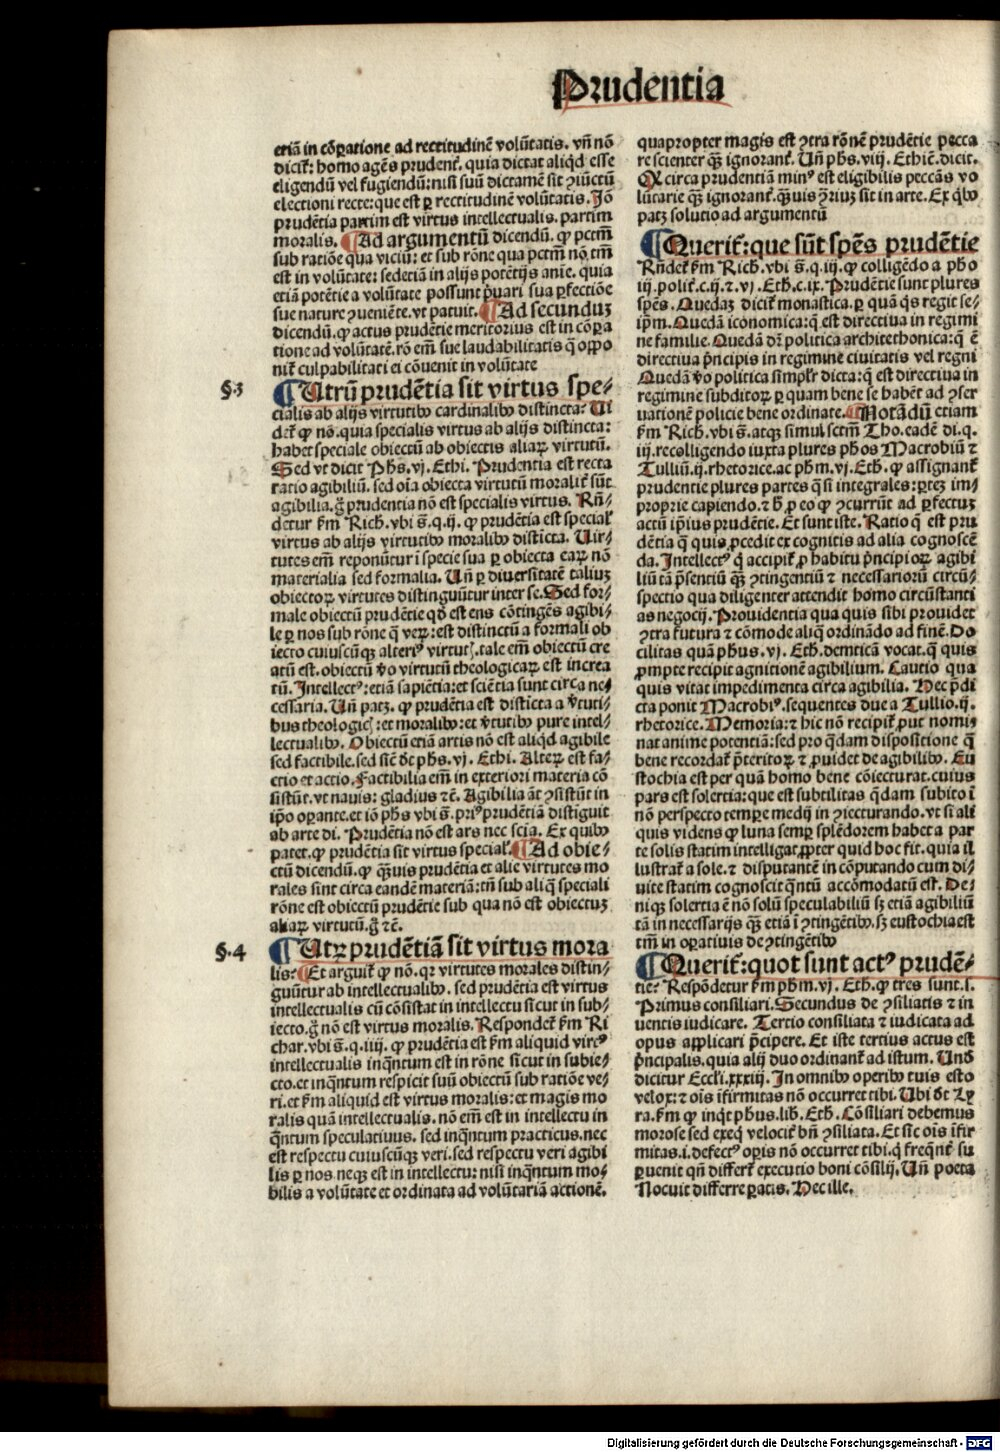 Prudentia
etiā in cōꝑatione ad rectitudinē volūtatis. vñ nō
dicit᷑: homo agēs prudent᷑. quia dictat aliqd esse
eligendū vel fugiendū: nisi suū dictamē sit ꝯiūctū
electioni recte: que est ꝑ rectitudinē volūtatis. Jō
prudētia partim est virtus intellectualis. partim
moralis. ¶ Ad argumentū dicendū. ꝙ pctm̄
sub ratiōe qua viciū: et sub rōne qua pctm̄ nō tm̄
est in volūtate: sed etiā in alijs potētijs anīe. quia
etiā potētie a volūtate possunt p̄uari sua ꝑfectiōe
sue nature ꝯueniēte. vt patuit. ¶ Ad secunduꝫ
dicendū. ꝙ actus prudētie meritorius est in cōꝑa
tione ad volūtatē. rō em̄ sue laudabilitatis q̄ oppo
nit᷑ culpabilitati ei cōuenit in volūtate
§.3 ¶ Utrū prudētia sit virtus spe⸗
cialis ab alijs virtutibꝰ cardinalibꝰ distincta? Ui
det᷑ ꝙ nō. quia specialis virtus ab alijs distincta:
habet speciale obiectū ab obiectis aliaꝝ virtutū.
Sed vt dicit Phs. vj. Ethi. Prudentia est recta
ratio agibiliū. sed oīa obiecta virtutū moraliū sūt
agibilia. g̊ prudentia nō est specialis virtus. Rn̄⸗
detur ẜm Rich. vbi s̄. q. ij. ꝙ prudētia est special᷑
virtus ab alijs virtutibꝰ moralibꝰ disticta. Uir⸗
tutes em̄ reponūtur ī specie sua ꝑ obiecta eaꝝ nō
materialia sed formalia. Uñ ꝑ diuersitatē taliuꝫ
obiectoꝝ virtutes distinguūtur inter se. Sed for⸗
male obiectū prudētie qd̄ est ens cōtingēs agibi⸗
le ꝑ nos sub rōne q̄ veꝝ: est distinctū a formali ob
iecto cuiuscūqꝫ alteriꝰ virtutꝭ. tale em̄ obiectū cre
atū est. obiectū v̄o virtutū theologicaꝝ est increa
tū. Intellectꝰ: etiā sapiētia: et sciētia sunt circa ne⸗
cessaria. Uñ patꝫ. ꝙ prudētia est disticta a v̄tuti⸗
bus theologicꝭ: et moralibꝰ: et v̄tutibꝰ pure intel⸗
lectualibꝰ. Obiectū etiā artis nō est aliqd agibile
sed factibile. sed sic̄ dt̄ phs. vj. Ethi. Alteꝝ est fa⸗
ctio et actio. Factibilia em̄ in exteriori materia cō
sistūt. vt nauis: gladius ꝛc̄. Agibilia āt ꝯsistūt in
ip̄o oꝑante. et iō phs vbi s̄. priꝰ prudētiā distiguit
ab arte di. Prudētia nō est ars nec scīa. Ex quibꝰ
patet. ꝙ prudētia sit virtus special᷑. ¶ Ad obie⸗
ctū dicendū. ꝙ qꝫuis prudētia et alie virtutes mo
rales sint circa eandē materiā: tn̄ sub aliq̄ speciali
rōne est obiectū prudētie sub qua nō est obiectuꝫ
aliaꝝ virtutū. g̊ ꝛc̄.
§.4 ¶ Utꝝ prudētiā sit virtus mora
lis? ¶ Et arguit᷑ ꝙ nō. qꝛ virtutes morales distin⸗
guūtur ab intellectualibꝰ. sed prudētia est virtus
intellectualis cū cōsistat in intellectu sicut in sub⸗
iecto. g̊ nō est virtus moralis. Respondet᷑ ẜm Ri
char. vbi s̄. q. iiij. ꝙ prudētia est ẜm aliquid virtꝰ
intellectualis inq̄ntum est in rōne sicut in subie⸗
cto. et inq̄ntum respicit suū obiectū sub ratiōe ve⸗
ri. et ẜm aliquid est virtus moralis: et magis mo
ralis quā intellectualis. nō em̄ est in intellectu in
q̄ntum speculatiuus. sed inq̄ntum practicus. nec
est respectu cuiuscūqꝫ veri. sed respectu veri agibi
lis ꝑ nos neqꝫ est in intellectu: nisi inq̄ntum mo⸗
bilis a volūtate et ordinata ad volūtariā actionē.
quapropter magis est ꝯtra rōnē prudētie pecca
re scienter qꝫ ignorant᷑. Uñ phs. viij. Ethic̄. dicit.
Ꝙ circa prudentiā minꝰ est eligibilis peccās vo
lūtarie qꝫ ignorant᷑. qꝫuis ꝯ̄riuꝫ sit in arte. Ex qͥbꝰ
patꝫ solutio ad argumentū
¶ Querit᷑: que sūt sp̄es prudētie
Rn̄det᷑ ẜm Rich. vbi s̄. q. iij. ꝙ colligēdo a pho
iij. polit᷑. c. ij. ꝛ. vj. Eth. c. ix. Prudētie sunt plures
sp̄es. Quedaꝫ dicit᷑ monastica. ꝑ quā qͥs regit se⸗
ip̄m. Quedā iconomica: q̄ est directiua in regimi
ne familie. Quedā dꝛ̄ politica architethonica: q̄ ē
directiua p̄ncipis in regimine ciuitatis vel regni
Quedā v̄o politica simpl̄r dicta: q̄ est directiua in
regimine subditoꝝ ꝑ quam bene se habēt ad ꝯser
uationē policie bene ordinate. ¶ Notādū etiam
ẜm Rich. vbi s̄. atqꝫ simul sctm̄ Tho. eadē di. q.
iij. recolligendo iuxta plures phos Macrobiū ꝛ
Tulliū. ij. rhetorice. ac phm. vj. Eth. ꝙ assignant᷑
prudentie plures partes q̄si integrales: ꝑteꝫ im⸗
proprie capiendo. ꝛ h̄ ꝓ eo ꝙ ꝯcurrūt ad ꝑfectuꝫ
actū ip̄ius prudētie. Et sunt iste. Ratio q̄ est pru
dētia q̄ quis ꝓcedit ex cognitis ad alia cognoscē
da. Intellectꝰ qͥ accipit᷑ ꝓ habitu p̄ncipioꝝ agibi
liū tā p̄sentiū qꝫ ꝯtingentiū ꝛ necessarioꝝ circū⸗
spectio qua diligenter attendit homo circūstanti
as negocij. Prouidentia qua quis sibi prouidet
ꝯtra futura ꝛ cōmode aliq̄ ordināndo ad finē. Do
cilitas quā phus. vj. Eth. demticā vocat. q̄ quis
ꝓmpte recipit agnitionē agibilium. Cautio qua
quis vitat impedimenta circa agibilia. Hec p̄di
cta ponit Macrobiꝰ. sequentes due a Tullio. ij.
rhetorice. Memoria: ꝛ hic nō recipit᷑ ꝓut nomi⸗
nat anime potentiā: sed pro q̄dam dispositione q̄
bene recordat᷑ p̄teritoꝝ ꝛ ꝓuidet de agibilibꝰ. Eu
stochia est per quā homo bene cōiecturat. cuius
pars est solertia: que est subtilitas q̄dam subito ī
nō perspecto tempꝛe medij in ꝯiecturando. vt si ali
quis videns ꝙ luna semꝑ splēdorem habet a par
te solis statim intelligat ꝓpter quid hoc fit. quia il
lustrat᷑ a sole. ꝛ disputantē in cōputando cum di⸗
uite statim cognoscit q̄ntū accōmodatū est. De⸗
niqꝫ solertia ē nō solū speculabiliū sꝫ etiā agibiliū
tā in necessarijs qꝫ etiā ī ꝯtingētibꝰ. sꝫ eustochia est
tm̄ in oꝑatiuis de ꝯtingētibꝰ
¶ Querit᷑: quot sunt actꝰ prudē⸗
tie? Respōdetur ẜm phm. vj. Eth. ꝙ tres sunt. s.
Primus consiliari. Secundus de ꝯsiliatis ꝛ in
uentis iudicare. Tertio consiliata ꝛ iudicata ad
opus applicari p̄cipere. Et iste tertius actus est
p̄ncipalis. quia alij duo ordinant᷑ ad istum. Und̄
dicitur Eccl̄i. xxxiij. In omnibꝰ operibꝰ tuis esto
velox: ꝛ oīs ifirmitas nō occurret tibi. Ubi dt̄ Ly
ra. ẜm ꝙ inqͥt phus. lib. Eth. Cōsiliari debemus
morose sed exeqͥ velocit᷑ bn̄ ꝯsiliata. Et sic oīs ifir
mitas. i. defectꝰ oꝑis nō occurret tibi. qͥ freqn̄t᷑ su
ꝑuenit qn̄ differt᷑ executio boni cōsilij. Uñ poeta
Nocuit differre ꝑatis. Hec ille.
Digitalisierung gefördert durch die Deutsche Forschungsgemeinschaft - DFG